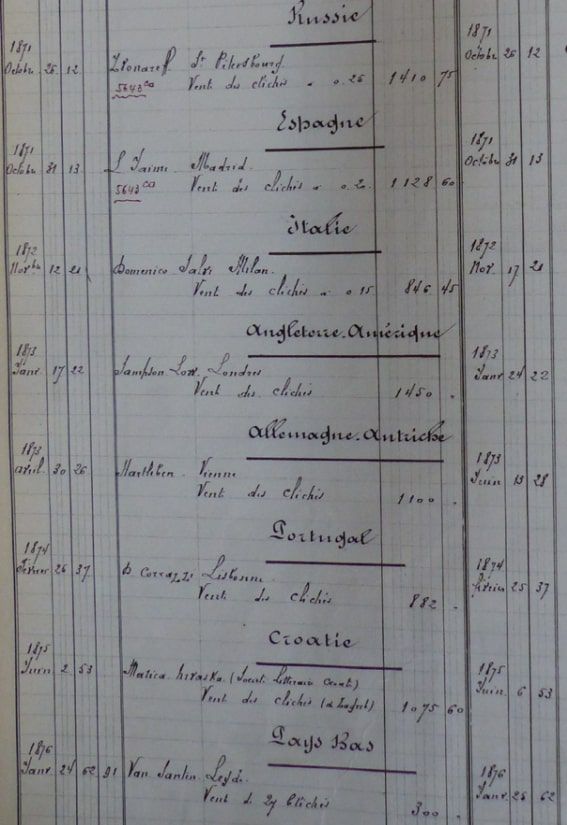 Russie
1871 1871
Octobre 26 12 St Petersbourg Octobre 26 12
5643 ca Vent des clichés a 0.25 1410 75
Espagne
1871 1871
Octobre 31 13 Madrid Octobre 31 13
5643 ca Vent des clichés a 0.20 1128 60
Italie
1872 1872
12 21 Domenico Milan Nov. 17 21
Vent des clichés a 0.15 846 45
Angleterre. Amérique
1873 1873
Janv 17 22 Sampson Low. Londres Janv 24 22
Vent des clichés 1450
Allemagne. Autriche
1873 1873
Avril 30 26 Hartleben Vienne Juin 13 28
Vent des clichés 1100
Portugal
1874 1874
Février 26 37 Corrazzi Lisbonne Février 25 37
Vent des clichés 882
Croatie
1875 1875
Juin 2 53 Matica hrvaska (Société Littéraire Croate) Juin 6 53
Vent des clichés (à Zagreb) 1075 60
Pays Bas
1876 1876
Janv 24 62 91 Van Santen Leyde. Janv 26 62
Vent d 27 Clichés 300